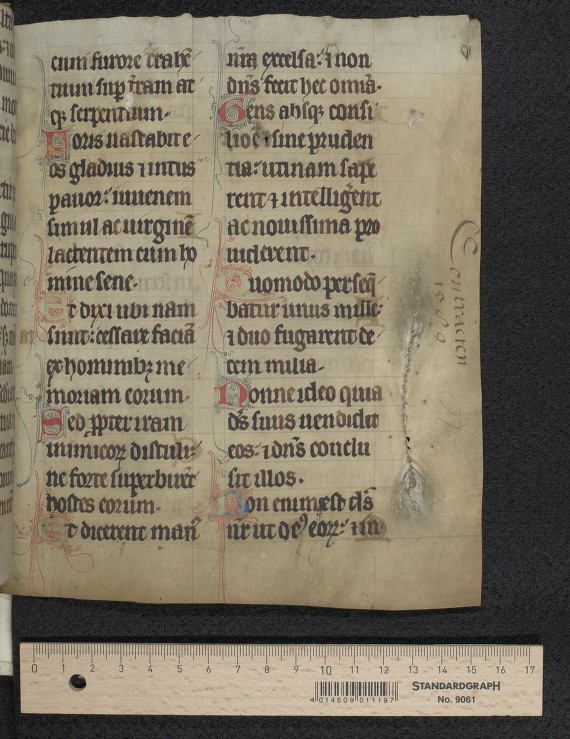 cum furore trahē
tium sup̄ t̄ram at
qꝫ serpentium·
Foris uastabit e
os gladius ⁊ intus
pauor: iuuenem
simul ac uirginē
lactentem cum ho
mine sene·
Et dixi ubi nam
sunt: cessare faciā
ex hominibꝫ me
moriam eorum·
Sed ꝓpter iram
inimicoꝝ distuli:
ne forte superbirēt
hostes eorum·
Et dicerent man⁹
nr̄a excelsa: ⁊ non
dn̄s fecit hec om̄ia·
Gens absqꝫ consi
lio ē ⁊ sine pruden
tia: utinam sape
rent ⁊ intelligēt
ac nouissima pro
uiderent·
Quomodo perseq̄
batur unus mille:
⁊ duo fugarent de
cem milia·
Nonne ideo quia
ds̄ suus uendidit
eos: ⁊ dn̄s conclu
sit illos·
Non enim est ds̄
nr̄ ut de⁹ eoꝝ: ⁊ in
0 1 2 3 4 5 6 7 8 9 10 11 12 13 14 15 16 17
4 014509 011197
STANDARDGRAPH
No. 9061